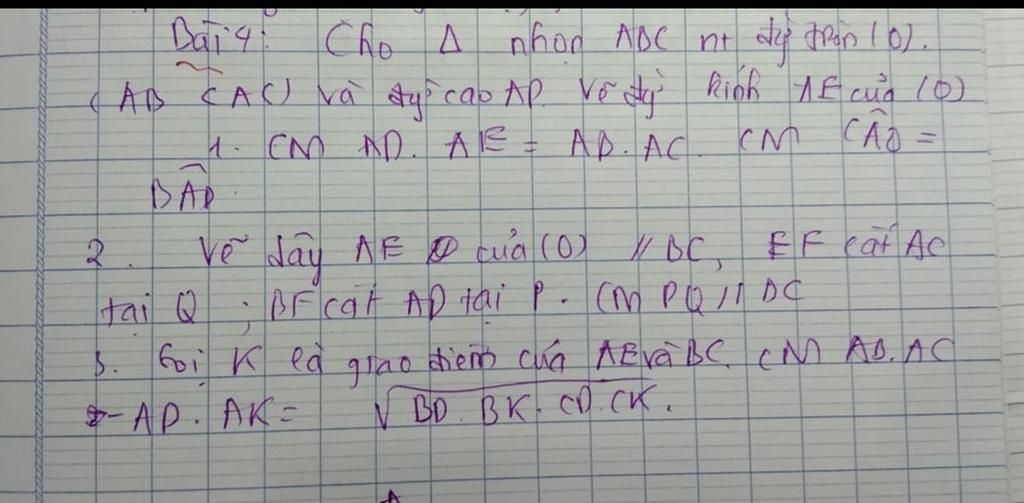 Bài 4: Cho Δ nhọn ABC nt đg tròn (O).
(AB < AC) và đg cao AD. Vẽ đg kính AE của (O)
1. CM AD. AE = AB. AC. CM CÂO =
BÂD.
2. Vẽ dây AF của (O) // BC, EF cắt AC
tại Q ; BF cắt AD tại P. CM PQ // BC
3. Gọi K là giao điểm của AE và BC. CM AB. AC
- AD. AK = √BD. BK. CD. CK.